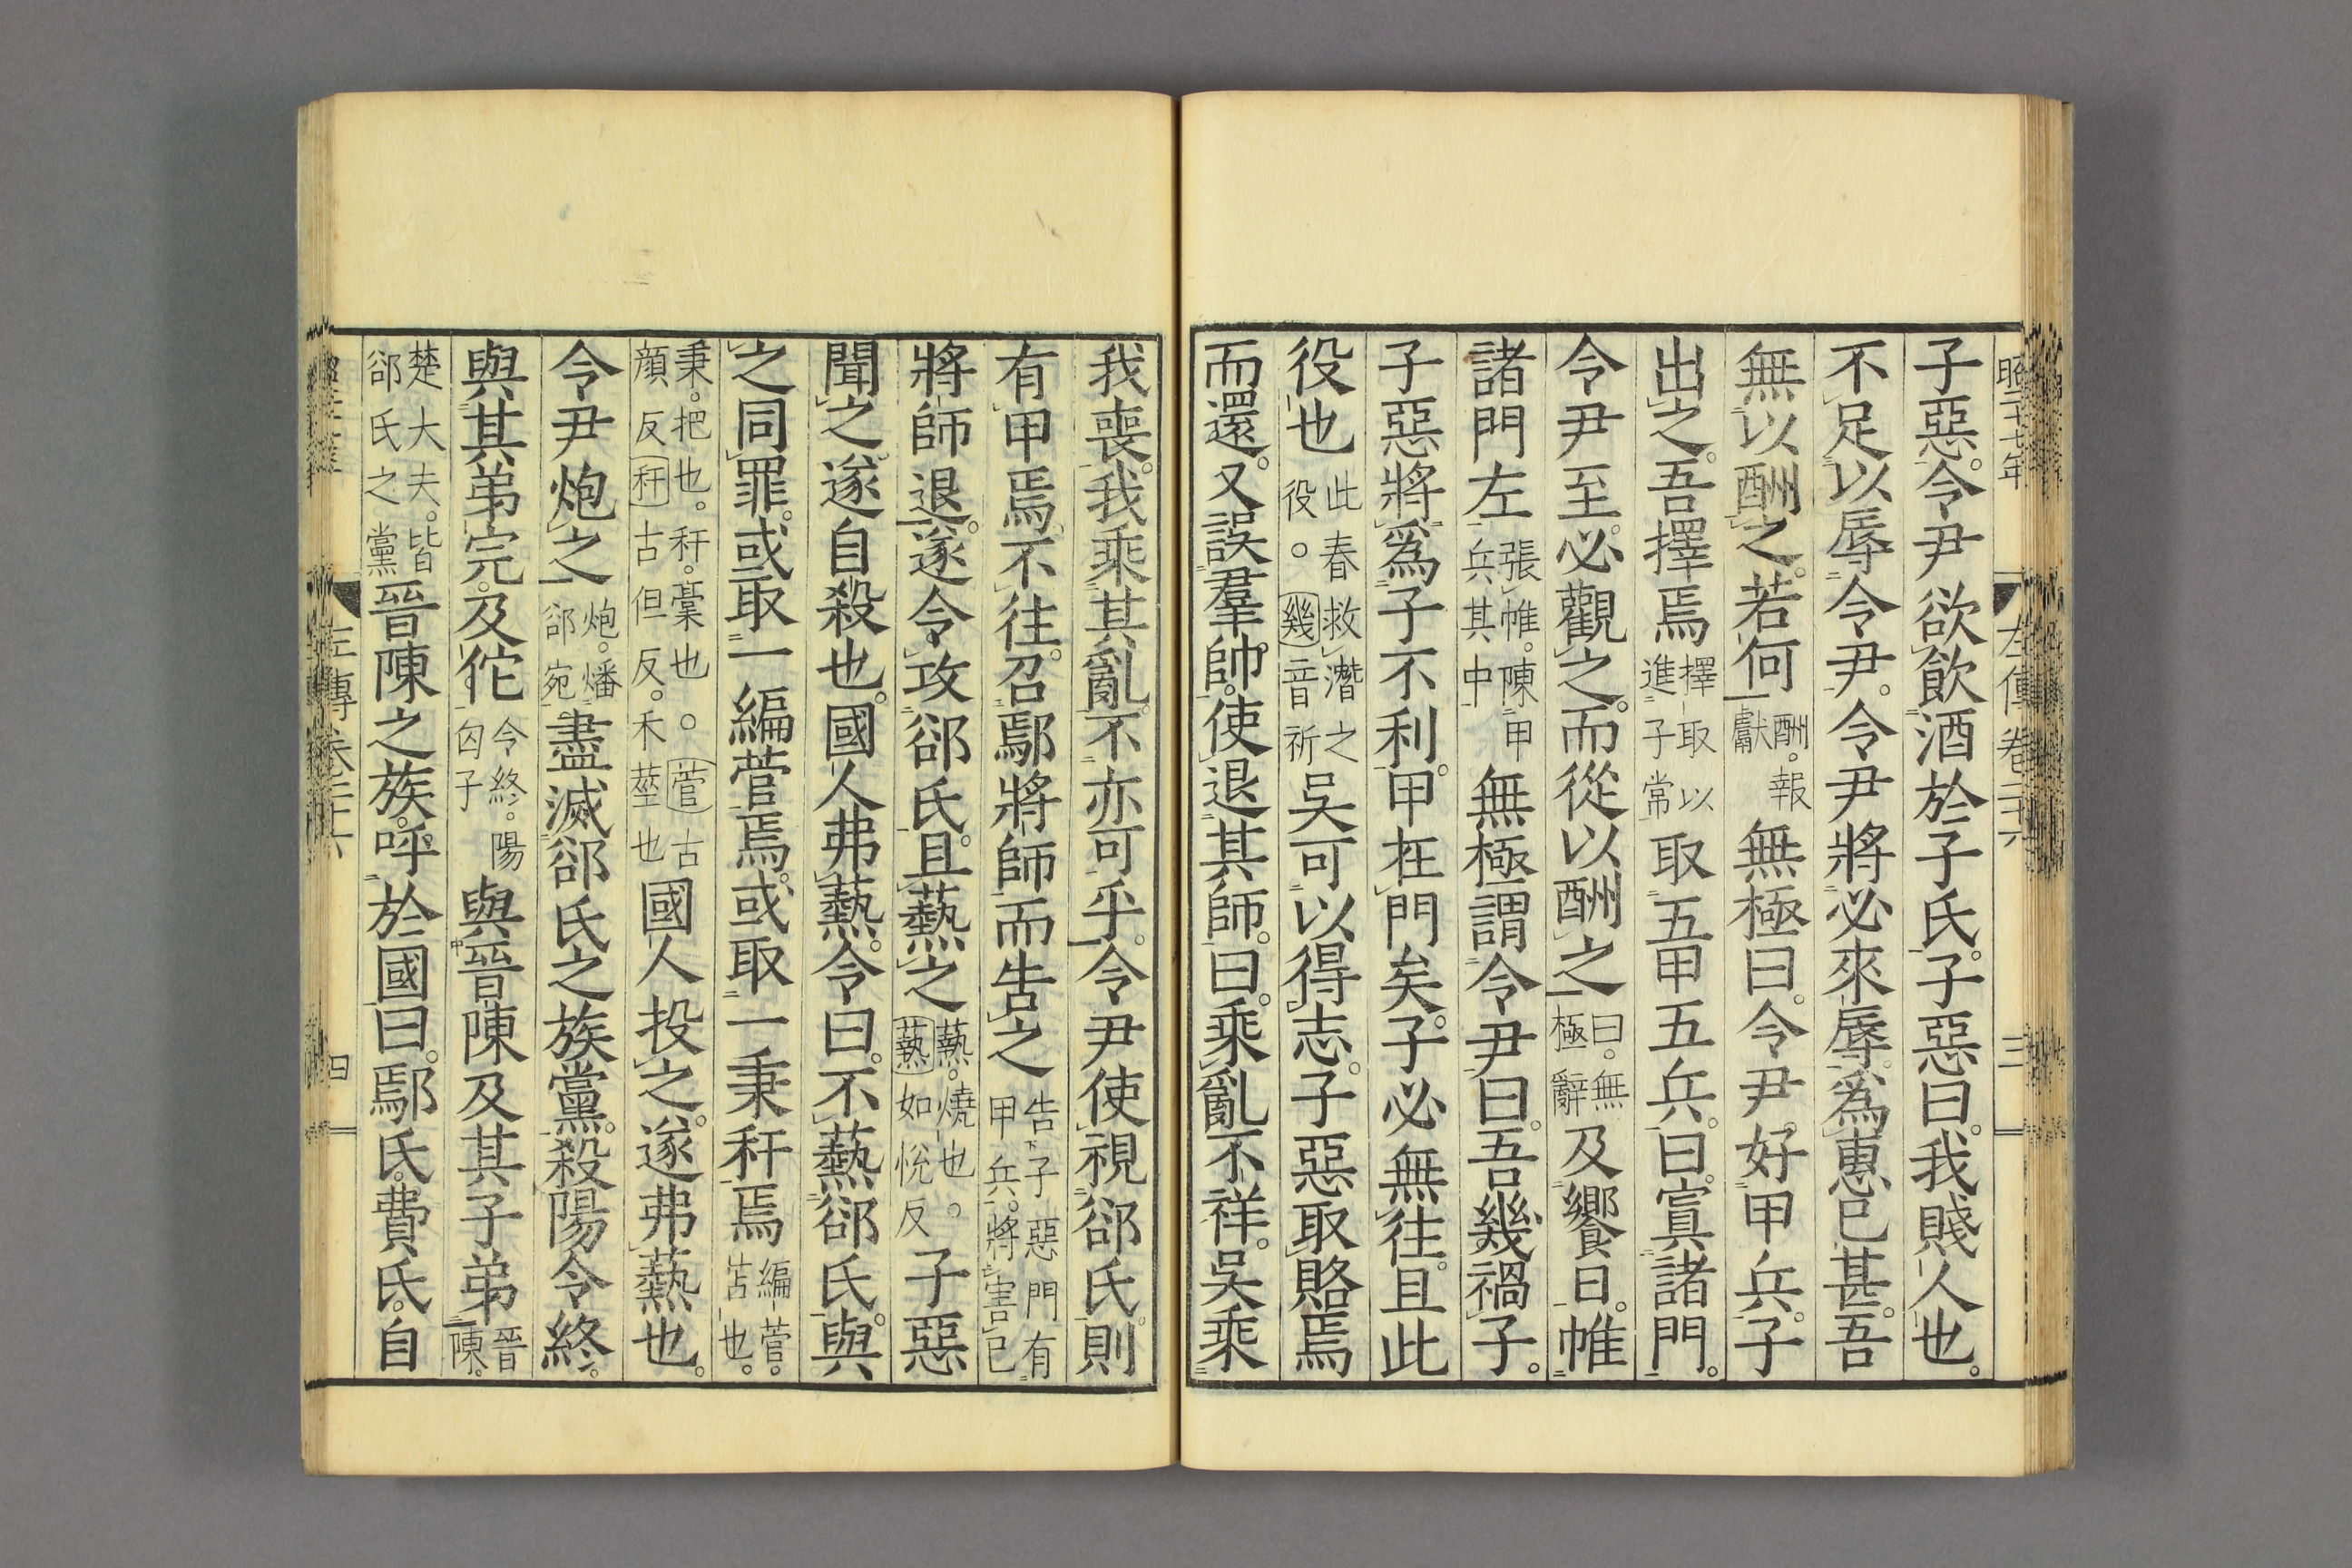 昭二十七年 左傳卷二十六 三
子惡。令尹欲飲酒於子氏。子惡曰。我賤人也。
不足以辱令尹。令尹將必來辱。爲惠已甚。吾
無以酬之。若何酬。報獻無極曰。令尹好甲兵。子
出之。吾擇焉擇取以進子常取五甲五兵。曰。寘諸門。
令尹至。必觀之。而從以酬之曰。無極辭及饗日。帷
諸門左張帷。陳甲兵其中無極謂令尹曰。吾幾禍子。
子惡將爲子不利。甲在門矣。子必無往。且此
役也此春救潛之役。幾音祈吳可以得志。子惡取賂焉
而還。又誤羣帥。使退其師。曰。乘亂不祥。吳乘
我喪。我乘其亂。不亦可乎。令尹使視郤氏。則
有甲焉。不往。召鄢將師而告之告子惡門有甲兵。將害己
將師退。遂令攻郤氏。且爇之爇。燒也。爇如悅反子惡
聞之。遂自殺也。國人弗爇。令曰。不爇郤氏。與
之同罪。或取一編菅焉。或取一秉秆焉編菅。苫也。
秉。把也。秆。稾也。菅古顏反秆古但反。禾莖也國人投之。遂弗爇也。
令尹炮之炮。燔郤宛盡滅郤氏之族黨。殺陽令終。
與其弟完。及佗令終。陽匄子與晉陳及其子弟晉陳。
楚大夫。皆郤氏之黨晉陳之族。呼於國曰。鄢氏。費氏。自
左傳卷二十六 四